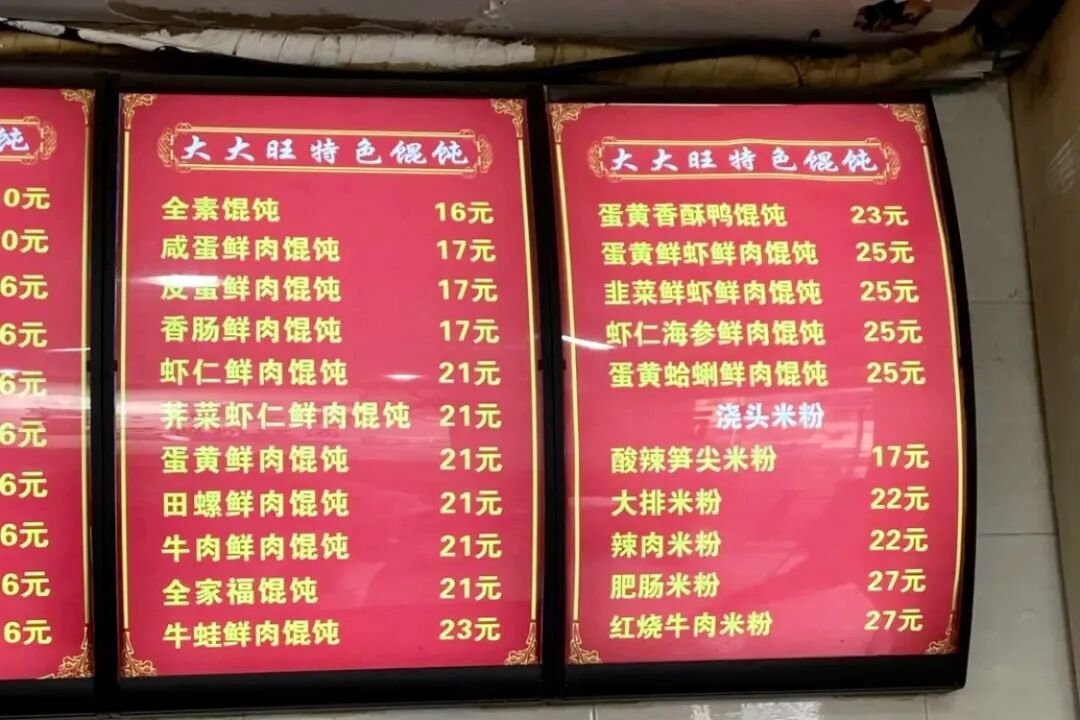 饨
0元
0元
6元
6元
6元
6元
6元
6元
6元
6元
大大旺特色馄饨
全素馄饨 16元
咸蛋鲜肉馄饨 17元
皮蛋鲜肉馄饨 17元
香肠鲜肉馄饨 17元
虾仁鲜肉馄饨 21元
荠菜虾仁鲜肉馄饨 21元
蛋黄鲜肉馄饨 21元
田螺鲜肉馄饨 21元
牛肉鲜肉馄饨 21元
全家福馄饨 21元
牛蛙鲜肉馄饨 23元
大大旺特色馄饨
蛋黄香酥鸭馄饨 23元
蛋黄鲜虾鲜肉馄饨 25元
韭菜鲜虾鲜肉馄饨 25元
虾仁海参鲜肉馄饨 25元
蛋黄蛤蜊鲜肉馄饨 25元
浇头米粉
酸辣笋尖米粉 17元
大排米粉 22元
辣肉米粉 22元
肥肠米粉 27元
红烧牛肉米粉 27元